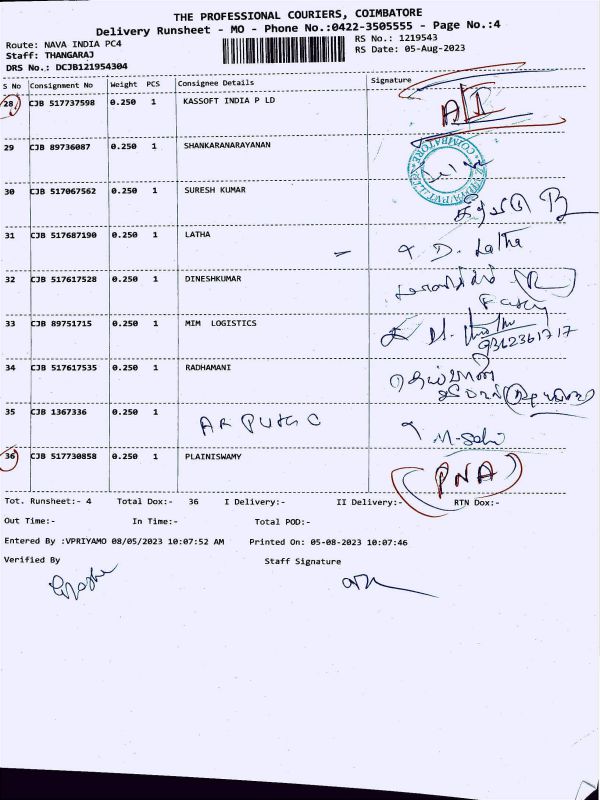 THE PROFESSIONAL COURIERS, COIMBATORE
Delivery Runsheet - MO - Phone No.:0422-3505555 - Page No.:4
Route: NAVA INDIA PC4
RS No.: 1219543
Staff: THANGARAJ
RS Date: 05-Aug-2023
DRS No.: DCJB121954304
S No Consignment No Weight PCS Consignee Details Signature
28 CJB 517737598 0.250 1 KASSOFT INDIA P LD
29 CJB 89736087 0.250 1 SHANKARANARAYANAN
COIMBATORE
30 CJB 517067562 0.250 1 SURESH KUMAR
31 CJB 517687190 0.250 1 LATHA D. Latha
32 CJB 517617528 0.250 1 DINESHKUMAR
33 CJB 89751715 0.250 1 MIM LOGISTICS
9362361717
34 CJB 517617535 0.250 1 RADHAMANI
35 CJB 1367336 0.250 1
36 CJB 517730858 0.250 1 PLAINISWAMY PNA
Tot. Runsheet:- 4 Total Dox:- 36 I Delivery:- II Delivery:- RTN Dox:-
Out Time:- In Time:- Total POD:-
Entered By :VPRIYAMO 08/05/2023 10:07:52 AM Printed On: 05-08-2023 10:07:46
Verified By Staff Signature